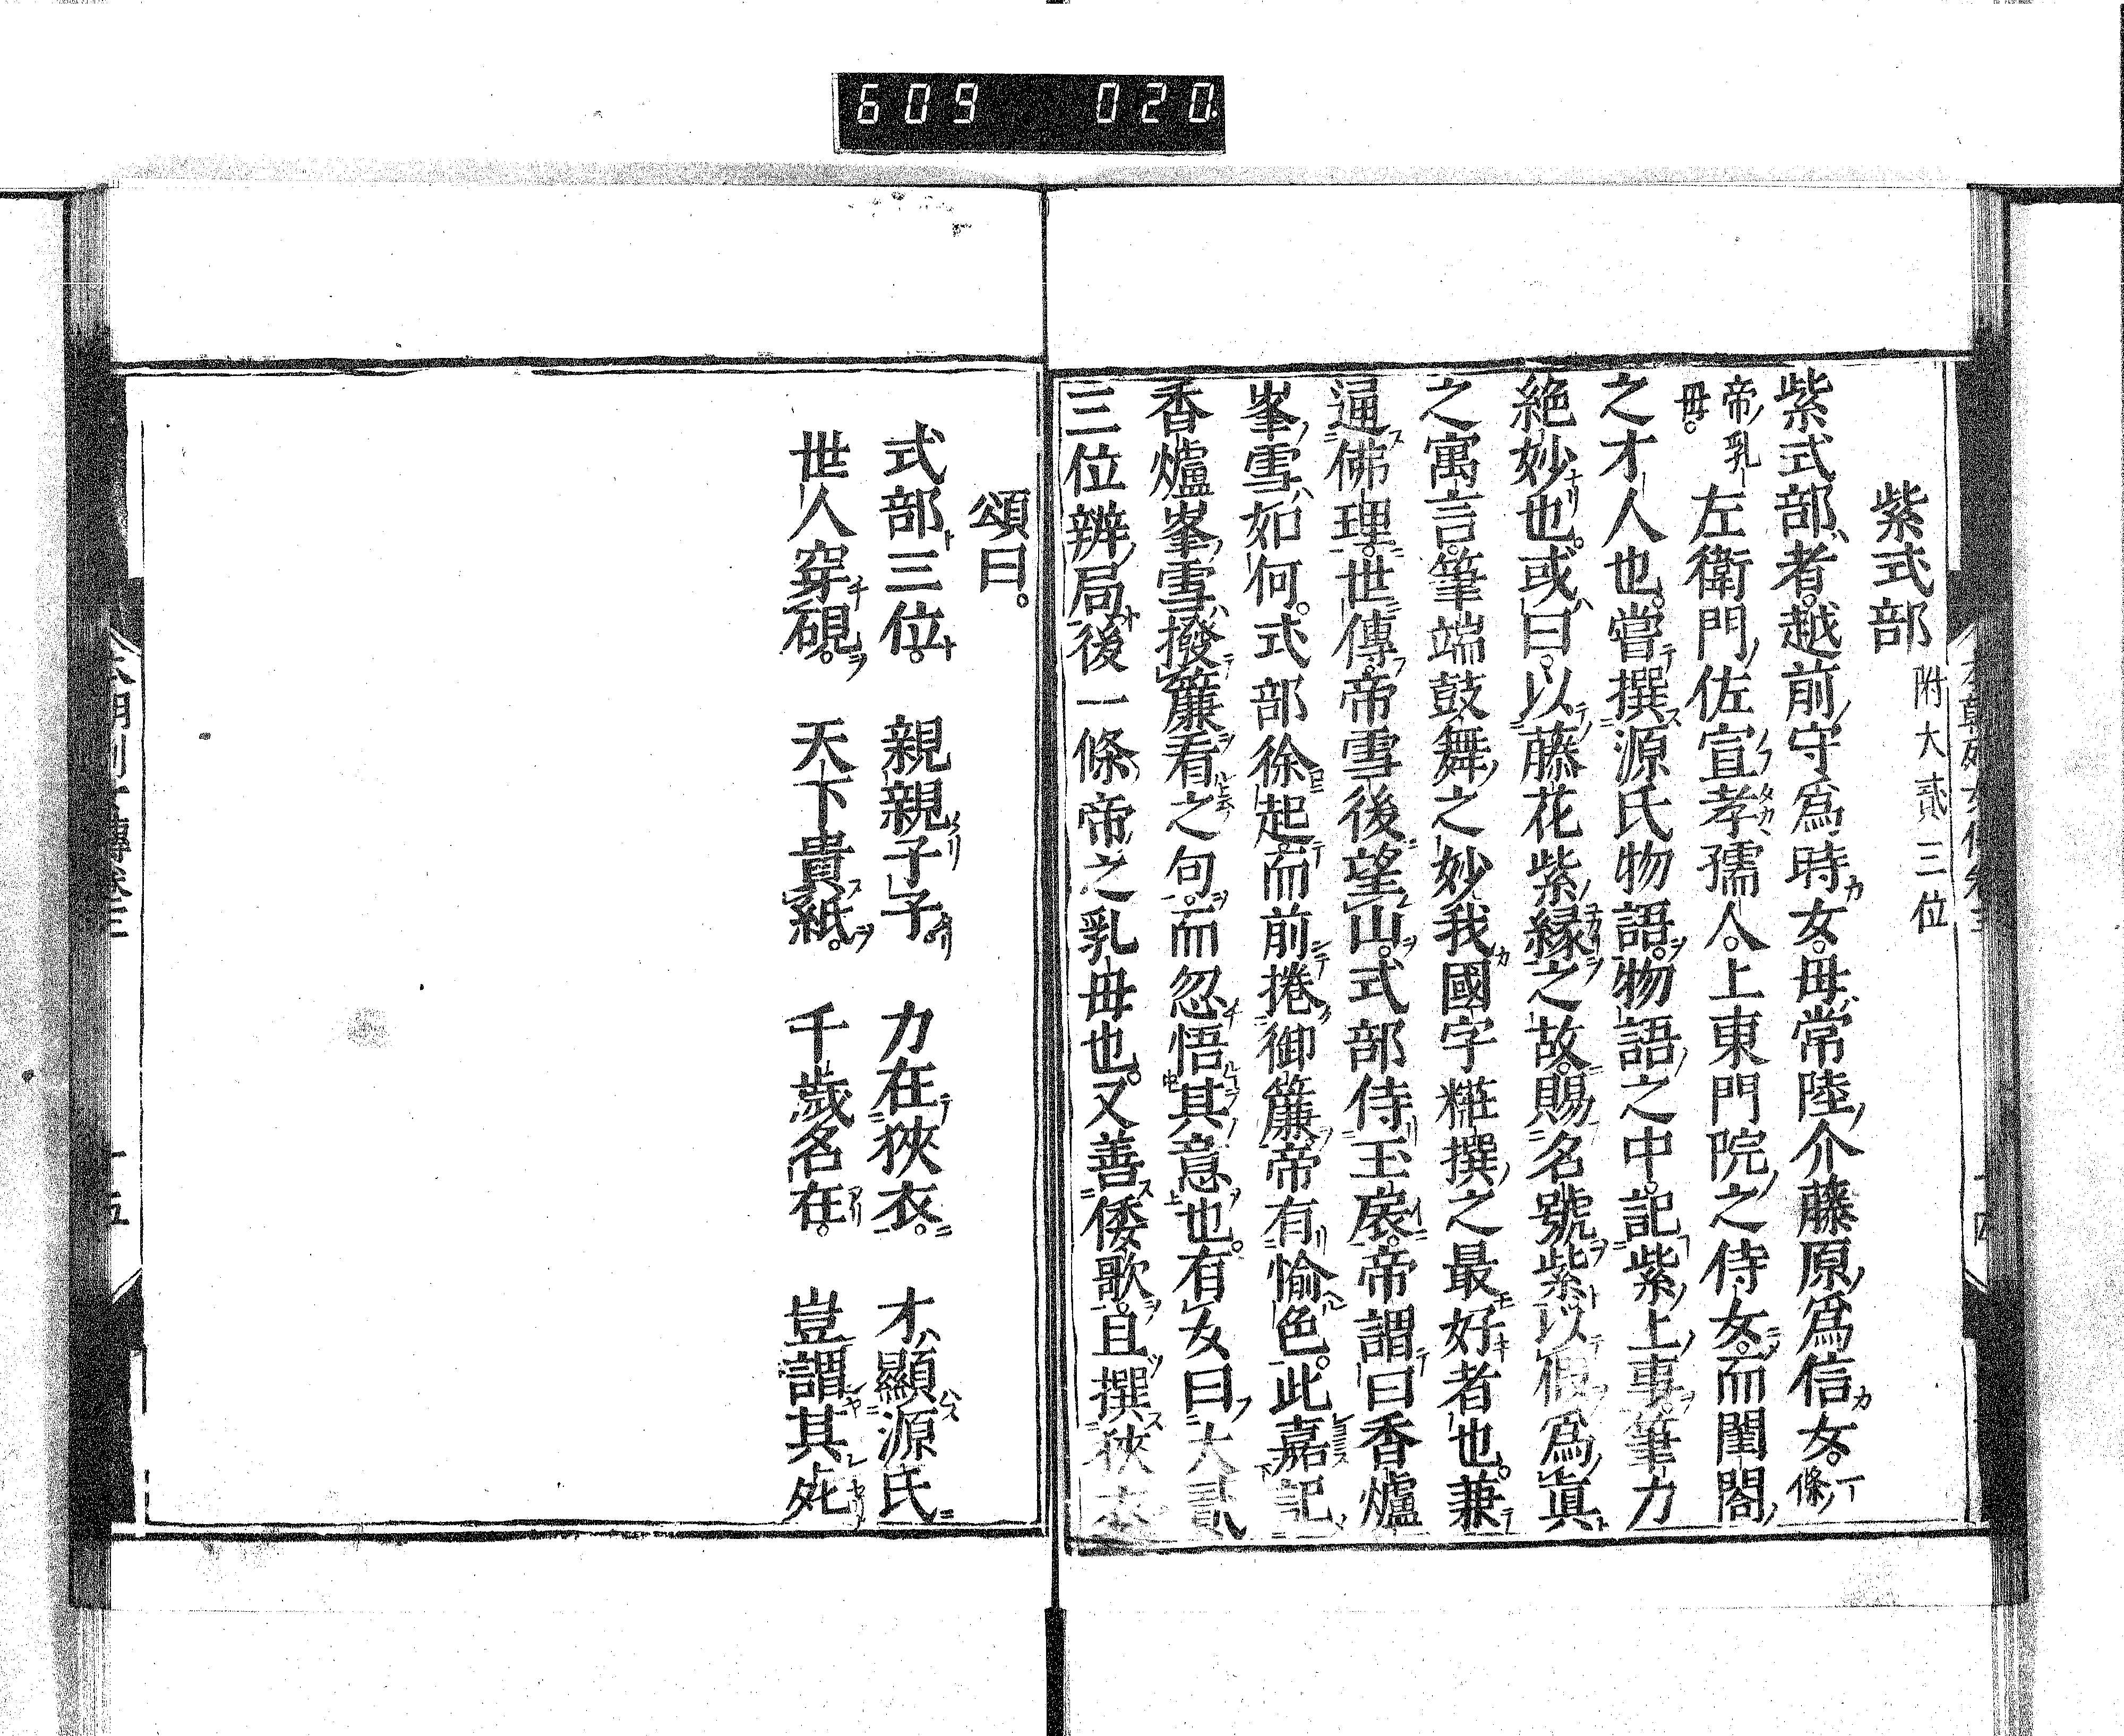 609 020
紫式部 附大貳三位
紫式部者。越前守爲時女。母常陸介藤原爲信女。一條
帝乳母。左衛門佐宣孝孺人。上東門院之侍女。而閨閤
之才人也。嘗撰源氏物語。物語之中。記紫上事。筆力
絶妙也。或曰。以藤花紫縁之故。賜名號紫。以假爲眞
之寓言。筆端鼓舞之妙。我國字糚撰之最好者也。兼
逼佛理。世傳。帝雪後望山。式部侍玉扆。帝謂曰香爐
峯雪如何。式部徐起而前捲御簾。帝有愉色。此嘉記
香爐峯雪撥簾看之句。而忽悟其意也。有女曰大貳
三位辨局。後一條帝之乳母也。又善倭歌。且撰狹衣
頌曰。
式部三位。 親親子子 力在狹衣。 才顯源氏
世人穿硯。 天下貴紙。 千歳名在。 豈謂其死